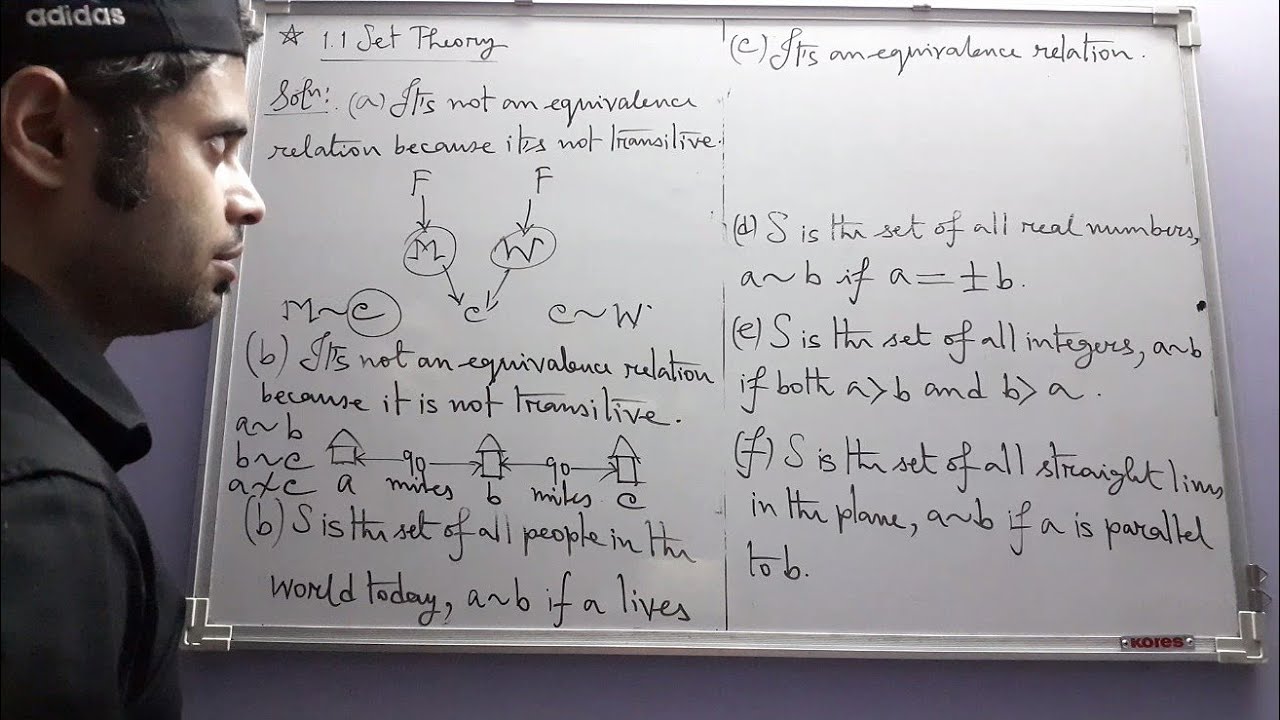 adidas
☆ 1.1 Set Theory
Solⁿ: (a) It's not an equivalence
relation because it's not transitive.
F F
M W
M~C C C~W
(b) It's not an equivalence relation
because it is not transitive.
a~b
b~c 90 90
a≁c a miles b miles c
(b) S is the set of all people in the
world today, a~b if a lives
(c) It's an equivalence relation.
(d) S is the set of all real numbers,
a~b if a=±b.
(e) S is the set of all integers, a~b
if both a>b and b>a.
(f) S is the set of all straight lines
in the plane, a~b if a is parallel
to b.
KORES